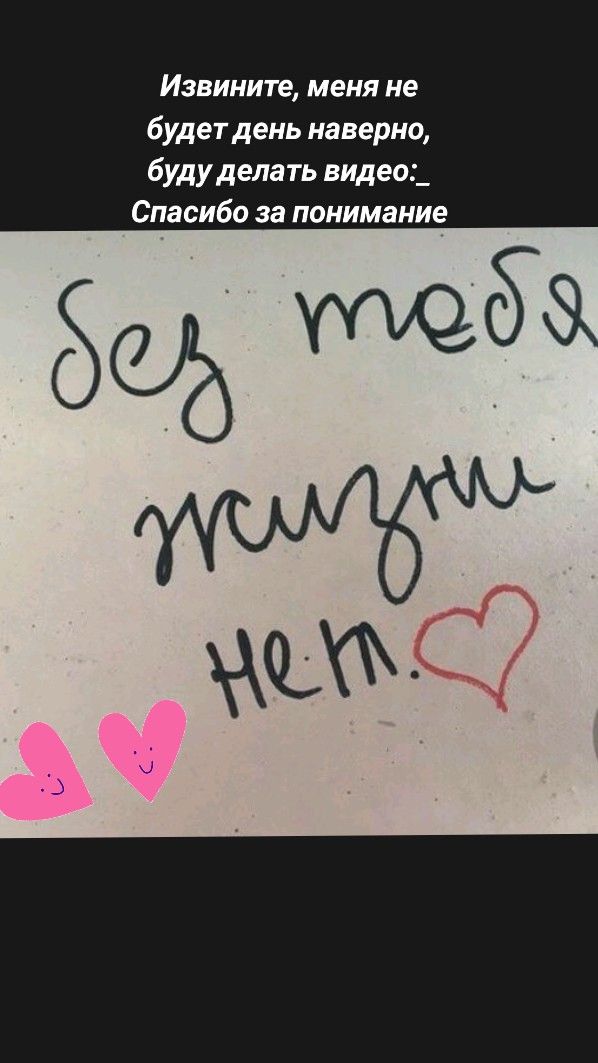 Извините, меня не
будет день наверно,
буду делать видео:_
Спасибо за понимание
без тебя
жизни
нет.